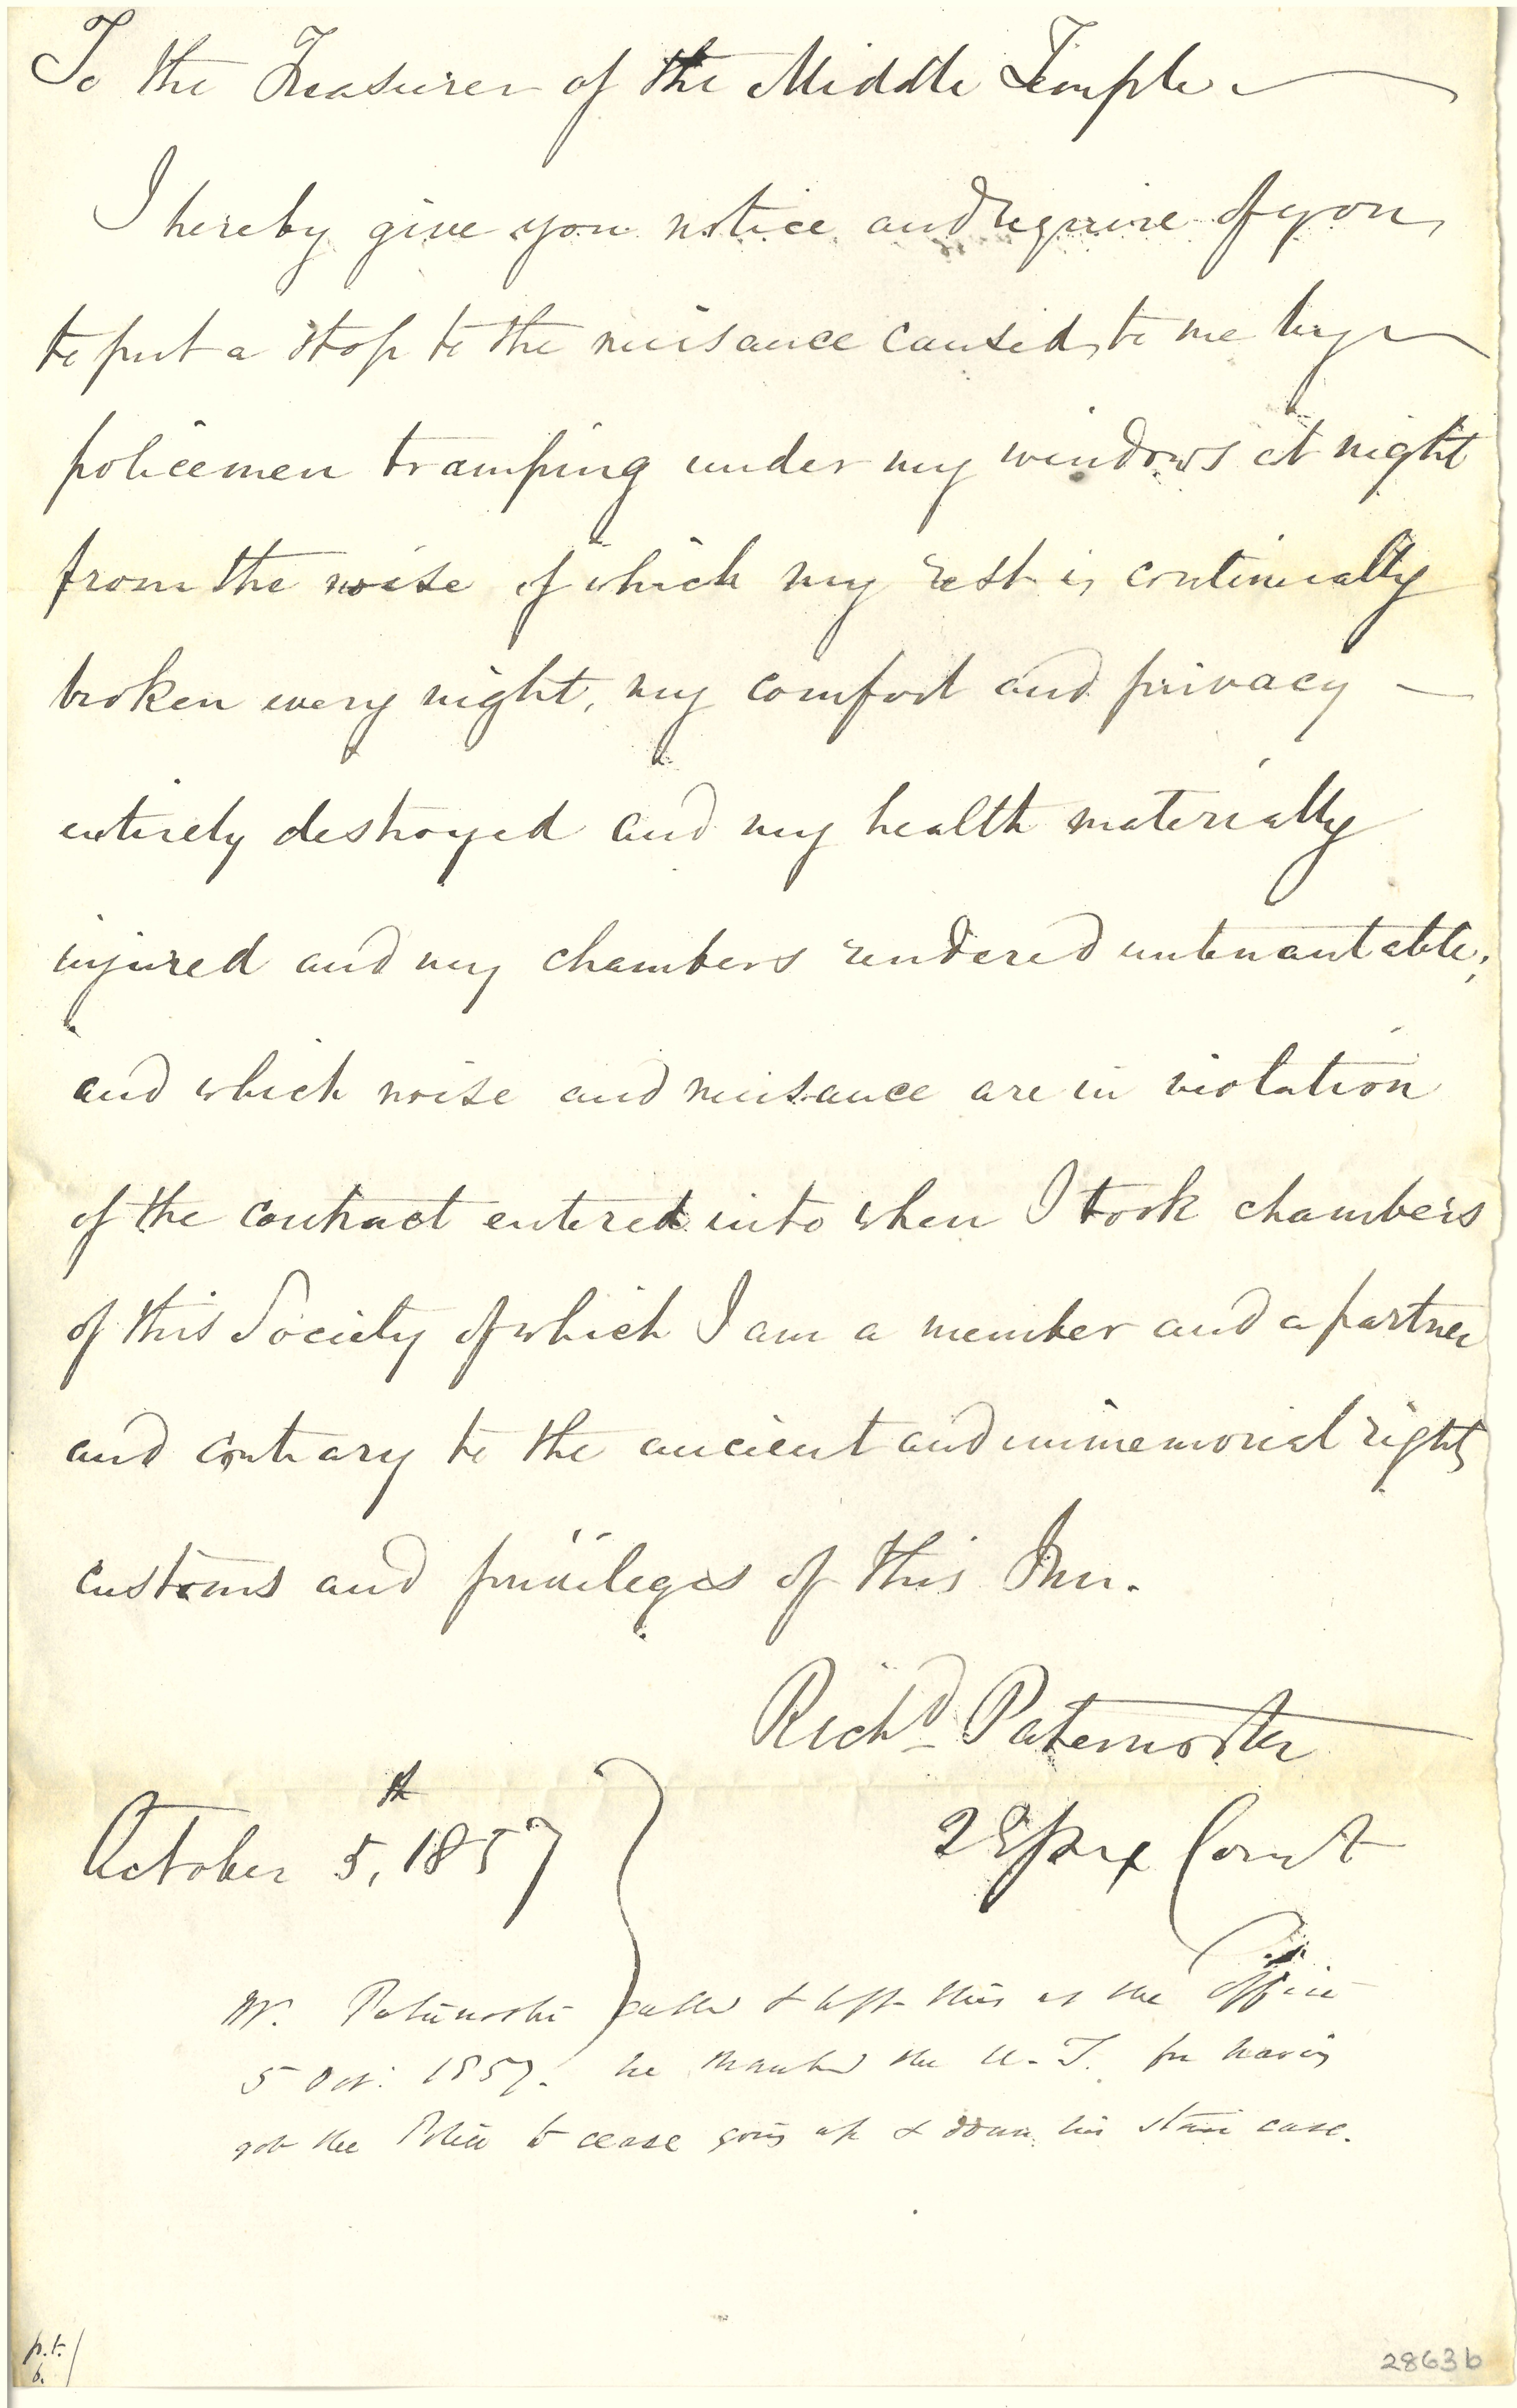 To the Treasurer of the Middle Temple
I hereby give you notice and require of you,
to put a stop to the nuisance caused, to me by
policemen tramping under my windows at night
from the noise of which my rest is continually
broken every night, my comfort and privacy —
entirely destroyed and my health materially
injured and my chambers rendered untenantable;
and which noise and nuisance are in violation
of the contract entered into when I took chambers
of this Society of which I am a member and a partner
and contrary to the ancient and immemorial rights
customs and privileges of this Inn.
Richd Paternoster
October 5th, 1857
2 Essex Court
Mr. Paternoster called & left this at the Office
5 Oct: 1857. he thanked the U. T. for having
got the Police to cease going up & down his stair case.
p.t.
6.
28636